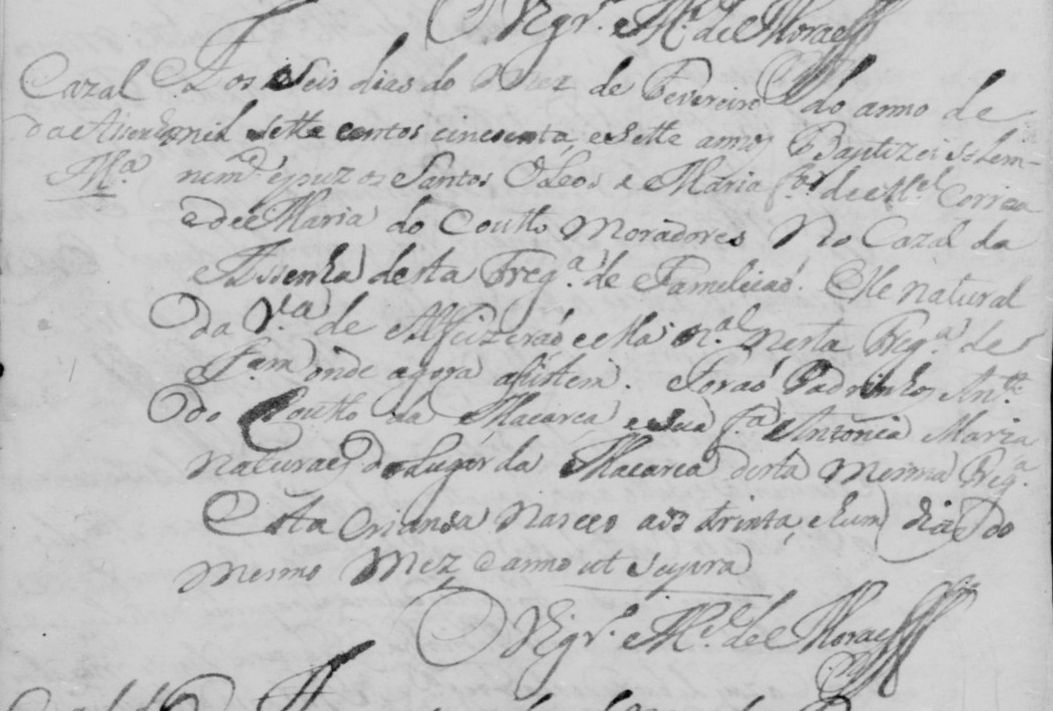 O Vigr.º M.el de Moraes
Cazal Aos Seis dias do Mez de Fevereiro do anno de
da Asenha mil sette centos cincoenta e sette annos Baptizei Solem-
M.ª nem.te e puz os Santos Oleos a Maria f.ª de M.el Correa
e de Maria do Coutto Moradores No Cazal da
Assenha desta Freg.ª de Familicaõ. Elle natural
da V.ª de Alfeizeraõ e ella n.al nesta Freg.ª de
Fam onde agora assistem. Foraõ Padrinhos An.to
do Coutto da Macarca e sua f.ª Antonia Maria
Naturaes do Lugar da Macarca desta mesma Freg.ª
Esta Criansa Nasceo aos trinta e hum dias do
mesmo Mez e anno ut supra
O Vigr.º M.el de Moraes